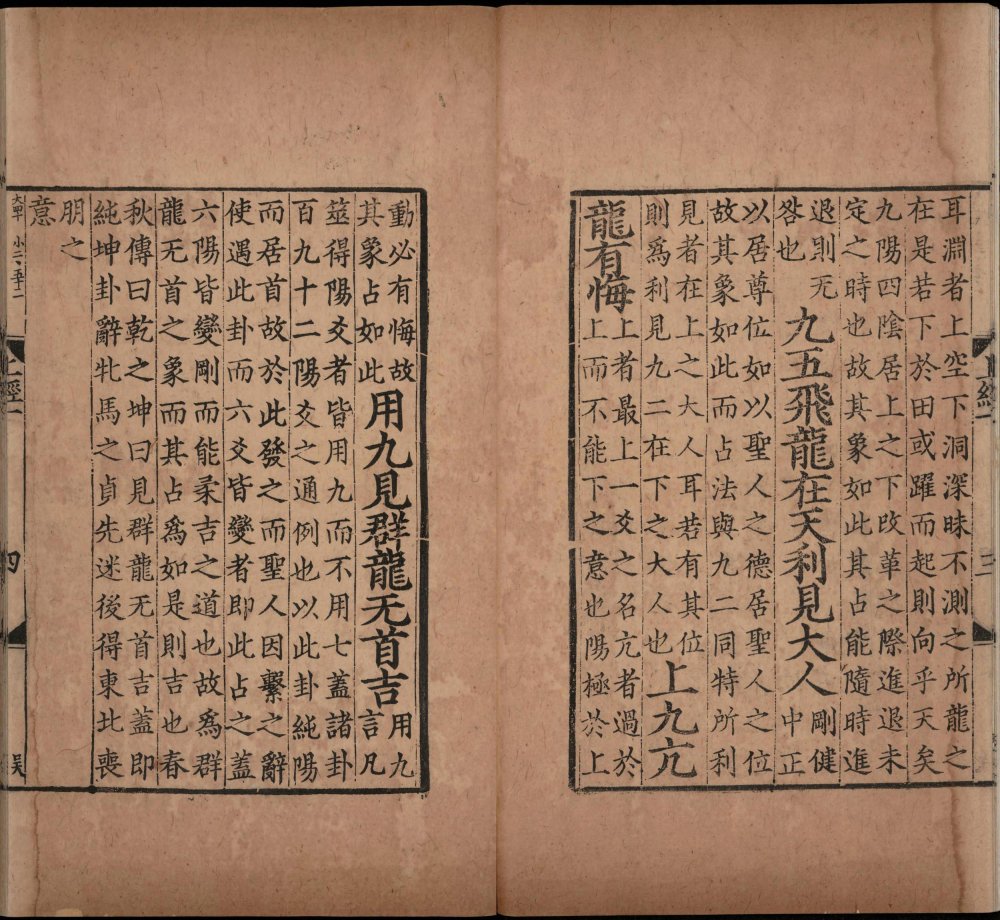 耳淵者上空下洞深昧不測之所龍之
在是若下於田或躍而起則向乎天矣
九陽四陰居上之下改革之際進退未
定之時也故其象如此其占能隨時進
退則无
咎也
九五飛龍在天利見大人
剛健
中正
以居尊位如以聖人之德居聖人之位
故其象如此而占法與九二同特所利
見者在上之大人耳若有其位
則爲利見九二在下之大人也
上九亢
龍有悔
上者最上一爻之名亢者過於
上而不能下之意也陽極於上
動必有悔故
其象占如此
用九見群龍无首吉
用九
言凡
筮得陽爻者皆用九而不用七蓋諸卦
百九十二陽爻之通例也以此卦純陽
而居首故於此發之而聖人因繫之辭
使遇此卦而六爻皆變者即此占之蓋
六陽皆變剛而能柔吉之道也故爲群
龍无首之象而其占爲如是則吉也春
秋傳曰乾之坤曰見群龍无首吉蓋即
純坤卦辭牝馬之貞先迷後得東北喪
朋之
意
四
吳